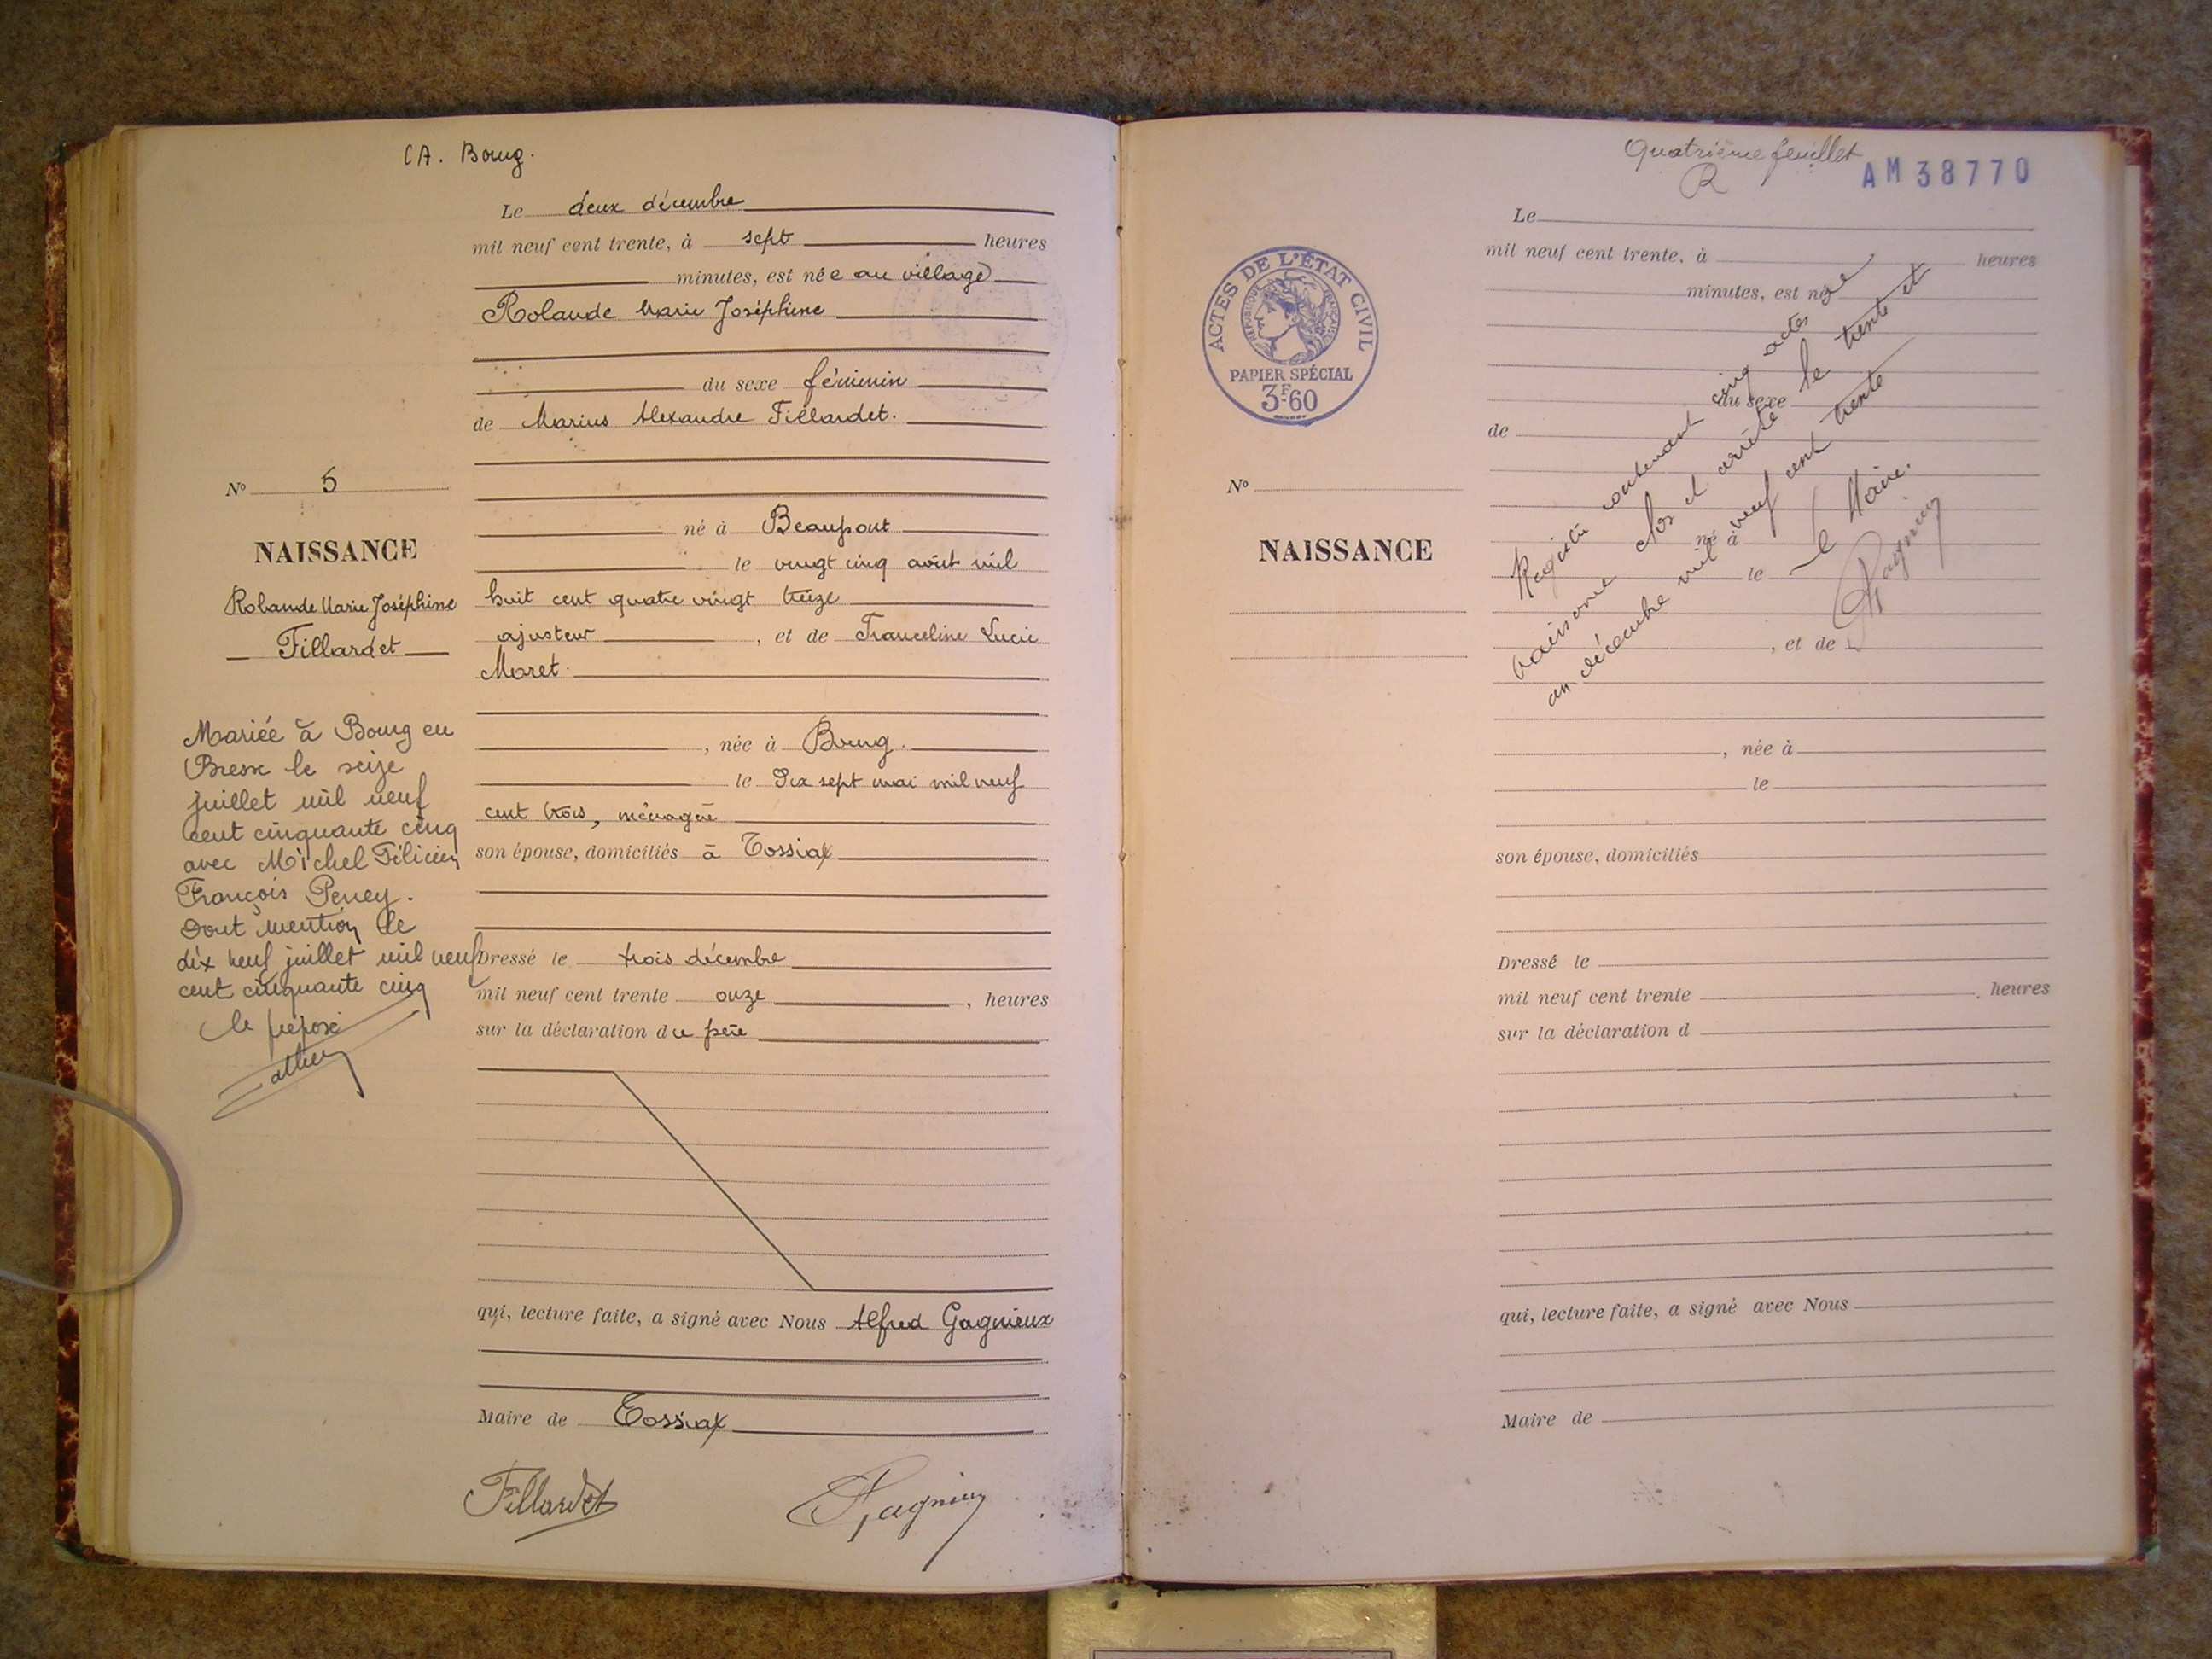 CA. Bourg.
Le deux décembre
mil neuf cent trente, à sept heures
minutes, est née au village
Rolande Marie Joséphine
du sexe féminin
de Marius Alexandre Fillardet.
né à Beaupont
le vingt cinq août mil
huit cent quatre vingt treize
ajusteur, et de Franceline Lucie
Moret.
, née à Bourg.
le Dix sept mai mil neuf
cent trois, ménagère
son épouse, domiciliés à Tossiat
Dressé le trois décembre
mil neuf cent trente onze, heures
sur la déclaration du père
qui, lecture faite, a signé avec Nous Alfred Gagnieux
Maire de Tossiat
Fillardet
Nº 5
NAISSANCE
Rolande Marie Joséphine
Fillardet
Mariée à Bourg en
Bresse le seize
juillet mil neuf
cent cinquante cinq
avec Michel Félicien
François Peney.
Dont mention le
dix neuf juillet mil neuf
cent cinquante cinq
le préposé
Quatrième feuillet
AM 38770
ACTES DE L'ÉTAT CIVIL
RÉPUBLIQUE FRANÇAISE
PAPIER SPÉCIAL
3F60
Nº
NAISSANCE
Le
mil neuf cent trente, à heures
minutes, est né
du sexe
de
né à
le
, et de
, née à
le
son épouse, domiciliés
Dressé le
mil neuf cent trente , heures
sur la déclaration d
qui, lecture faite, a signé avec Nous
Maire de
Registre contenant cinq actes de
naissance clos et arrêté le trente et
un décembre mil neuf cent trente
Le Maire.